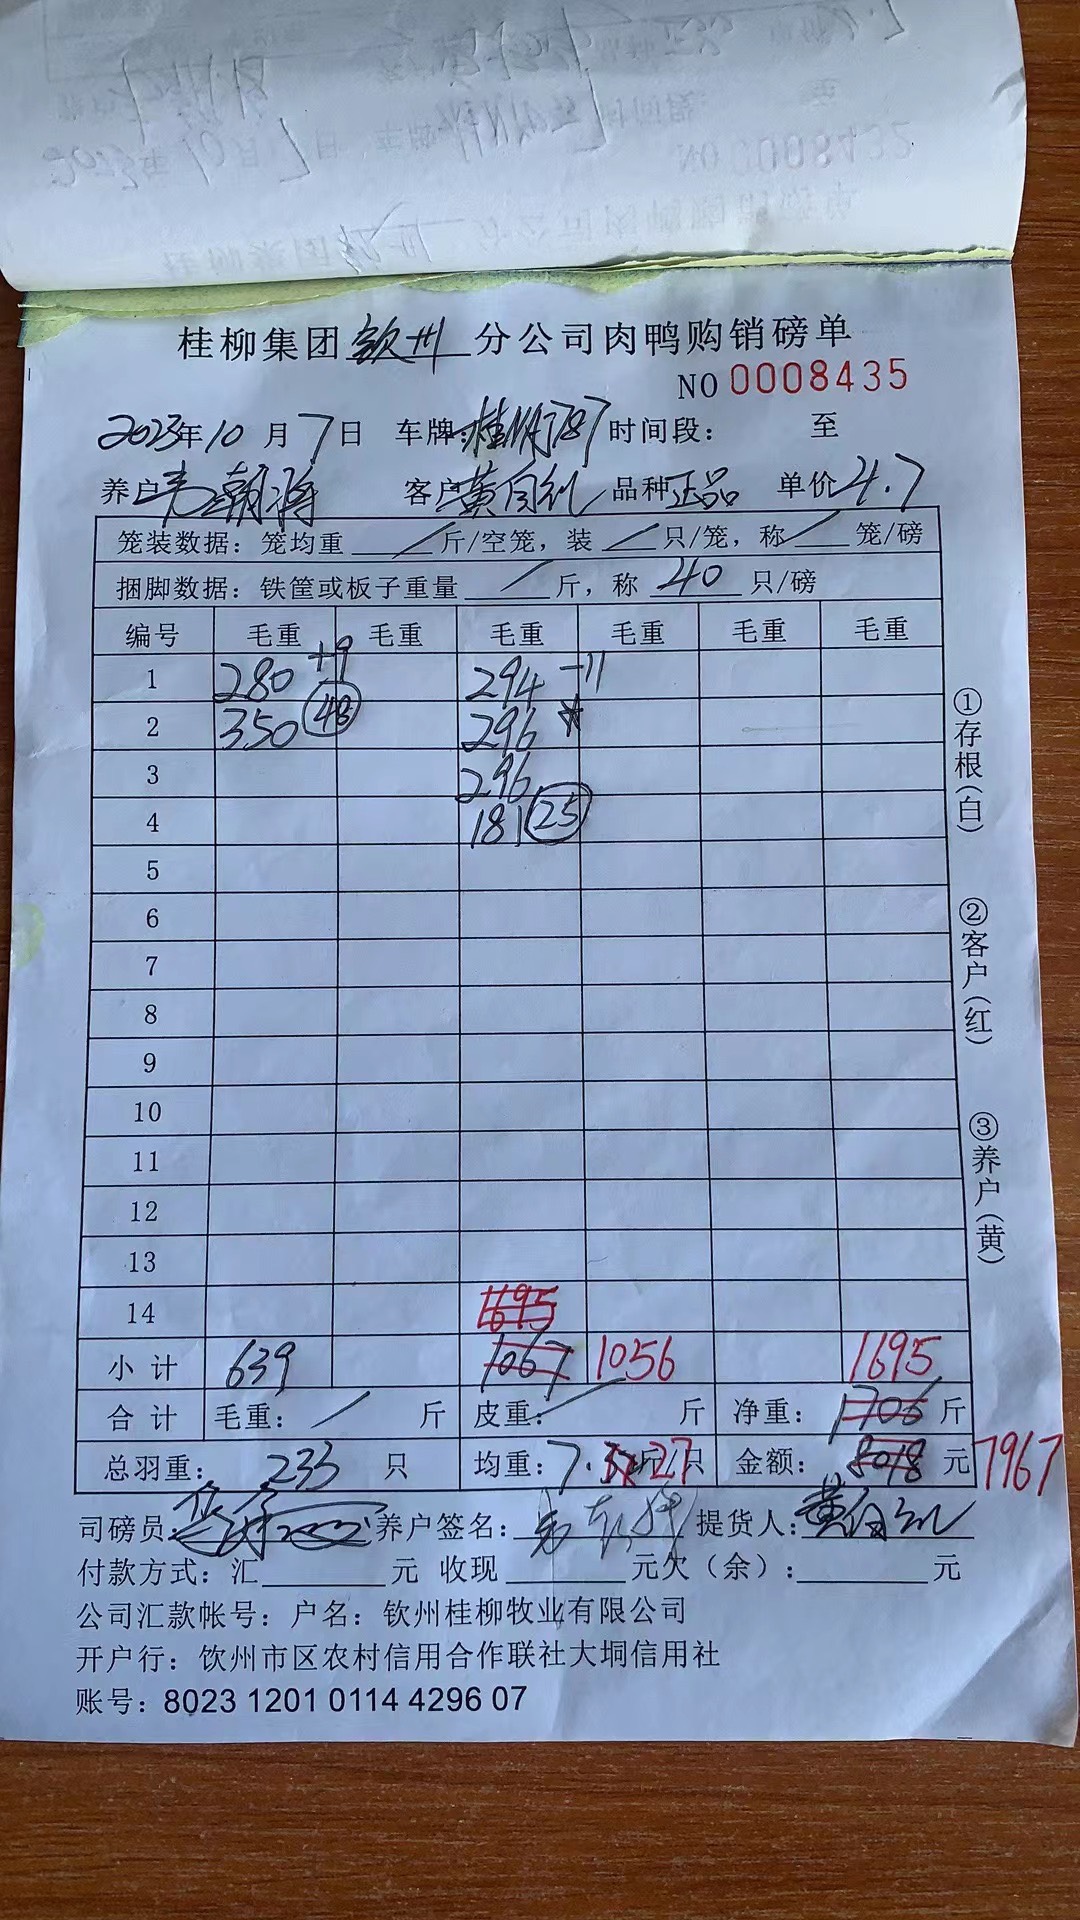 桂柳集团钦州分公司肉鸭购销磅单
NO 0008435
2023年10月7日 车牌:桂 787 时间段: 至
养户韦朝将 客户黄自礼 品种正品 单价4.7
笼装数据:笼均重 / 斤/空笼,装 / 只/笼,称 / 笼/磅
捆脚数据:铁筐或板子重量 / 斤,称 40 只/磅
编号 毛重 毛重 毛重 毛重 毛重 毛重
1 280 +9 294 -11
2 350 48 296
3 296
4 181 25
5
6
7
8
9
10
11
12
13
14 1695
小计 639 1067 1056 1695
合计 毛重: / 斤 皮重: / 斤 净重: 1706 斤
总羽重: 233 只 均重: 7.27 只 金额: 8018 元 7967
司磅员: 养户签名: 提货人:黄自礼
付款方式:汇 元 收现 元欠(余): 元
公司汇款帐号:户名:钦州桂柳牧业有限公司
开户行:饮州市区农村信用合作联社大垌信用社
账号:8023 1201 0114 4296 07
①存根(白)
②客户(红)
③养户(黄)